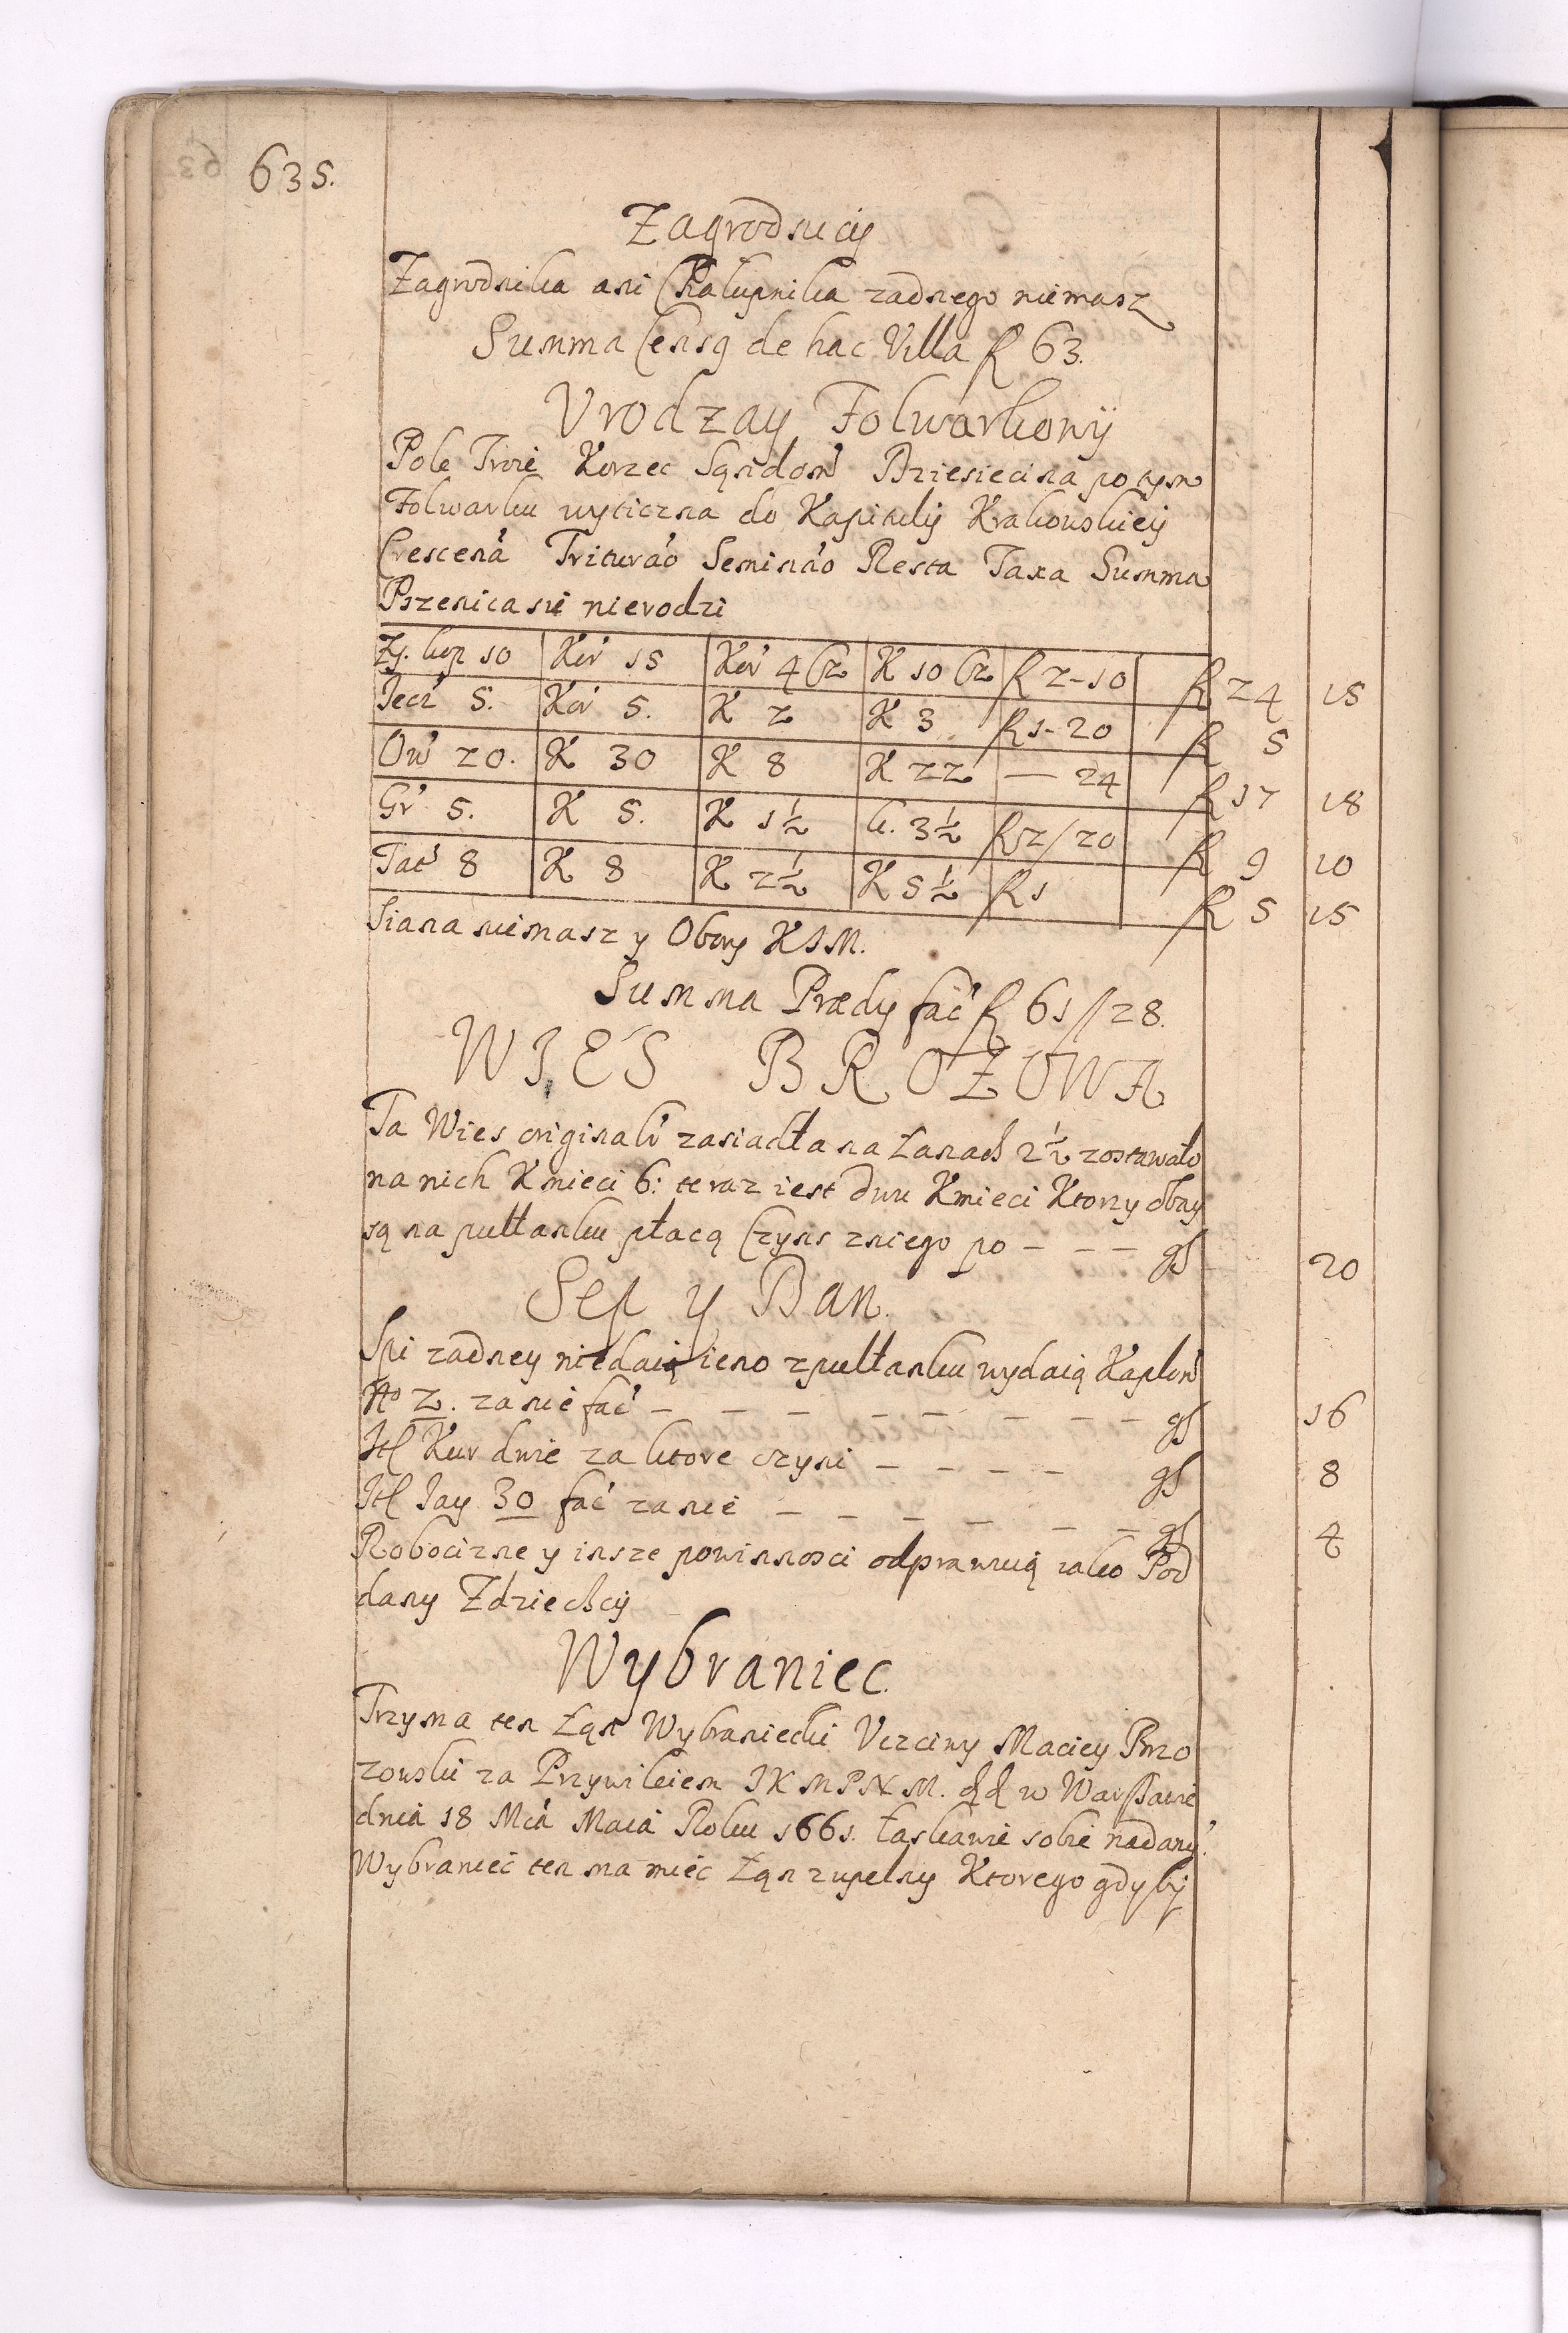 635.
Zagrodnicy
Zagrodnika ani Chałupnika zadnego niemasz
Summa Censq de hac Villa fl 63.
Vrodzay Folwarkowy
Pole Troie Korzec Sąndom' Dziesiecina po tym
Folwarku wyticzna do Kapituły Krakowskiey
Crescen'a Triturao Seminao Resta Taxa Summa
Pszenica sie nierodzi
Zy. kup 10 Kor' 15 Kor' 4 Cz K 10 Cz fl 2-10 fl 24 15
Iecz' 5. Kor' 5. K 2 K 3 fl 1-20 fl 5
Ow' 20. K 30 K 8 K 22 — 24 fl 17 18
Gr' 5. K 5. K 1½ k. 3½ fl 2/20 fl 9 10
Tat' 8 K 8 K 2½ K 5½ fl 1 fl 5 15
Siana niemasz y Obory KIM.
Summa Prædy fac' fl 61//28.
WIES BROZOWA
Ta Wies original' zasiadła na Łanach 2½ zostawało
na nich Kmieci 6: teraz iest dwu Kmieci Ktorzy obay
są na pułłanku płacą Czyns zniego po - - - gs 20
Sep y Dan.
Spi zadney niedaią ieno zpułłanku wydaią Kapłon'
No 2. zanie fac' - - - - - - - - gs 16
Itl Kur dwie za ktore czyni - - - - gs 8
Itl Iay 30 fac' zanie - - - - - - gs 4
Robocizne y insze powinnosci odprawuią iako Pod
dany Zdziechcy
Wybraniec.
Trzyma ten Łąn Wybraniecki Uczciwy Maciey Brzo
zowski za Przywileiem IKMPNM. dd w Warszawie
dnia 18 Mca Maia Roku 1661. łaskawie sobie nadany.
Wybraniec ten ma miec Łąn zupełny Ktorego gdyby